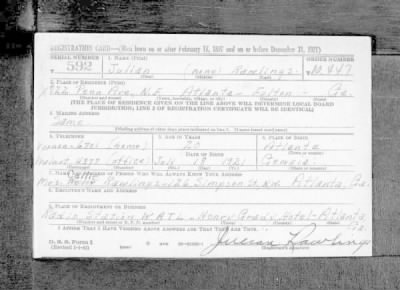 REGISTRATION CARD—(Men born on or after February 17, 1897 and on or before December 31, 1921)
SERIAL NUMBER 1. NAME (Print) ORDER NUMBER
592 Julian (none) Rawlings 10,447
(First) (Middle) (Last)
2. PLACE OF RESIDENCE (Print)
Penn Ave. N.E. Atlanta Fulton Ga.
(Number and street) (Town, township, village, or city) (County) (State)
[THE PLACE OF RESIDENCE GIVEN ON THE LINE ABOVE WILL DETERMINE LOCAL BOARD
JURISDICTION; LINE 2 OF REGISTRATION CERTIFICATE WILL BE IDENTICAL]
3. MAILING ADDRESS
Same
[Mailing address if other than place indicated on line 2. If same insert word same]
4. TELEPHONE 5. AGE IN YEARS 6. PLACE OF BIRTH
(home) 20 Atlanta
DATE OF BIRTH
(office) July 18 1921 Georgia
7. NAME AND ADDRESS OF PERSON WHO WILL ALWAYS KNOW YOUR ADDRESS
Mrs. Rawlings Simpson St. N.W. Atlanta, Ga.
8. EMPLOYER'S NAME AND ADDRESS
Radio Station W.A.T.L.
9. PLACE OF EMPLOYMENT OR BUSINESS
Henry Grady Hotel Atlanta
Ga.
I AFFIRM THAT I HAVE VERIFIED ABOVE ANSWERS AND THAT THEY ARE TRUE.
D. S. S. Form 1
Julian Rawlings
(Registrant's signature)